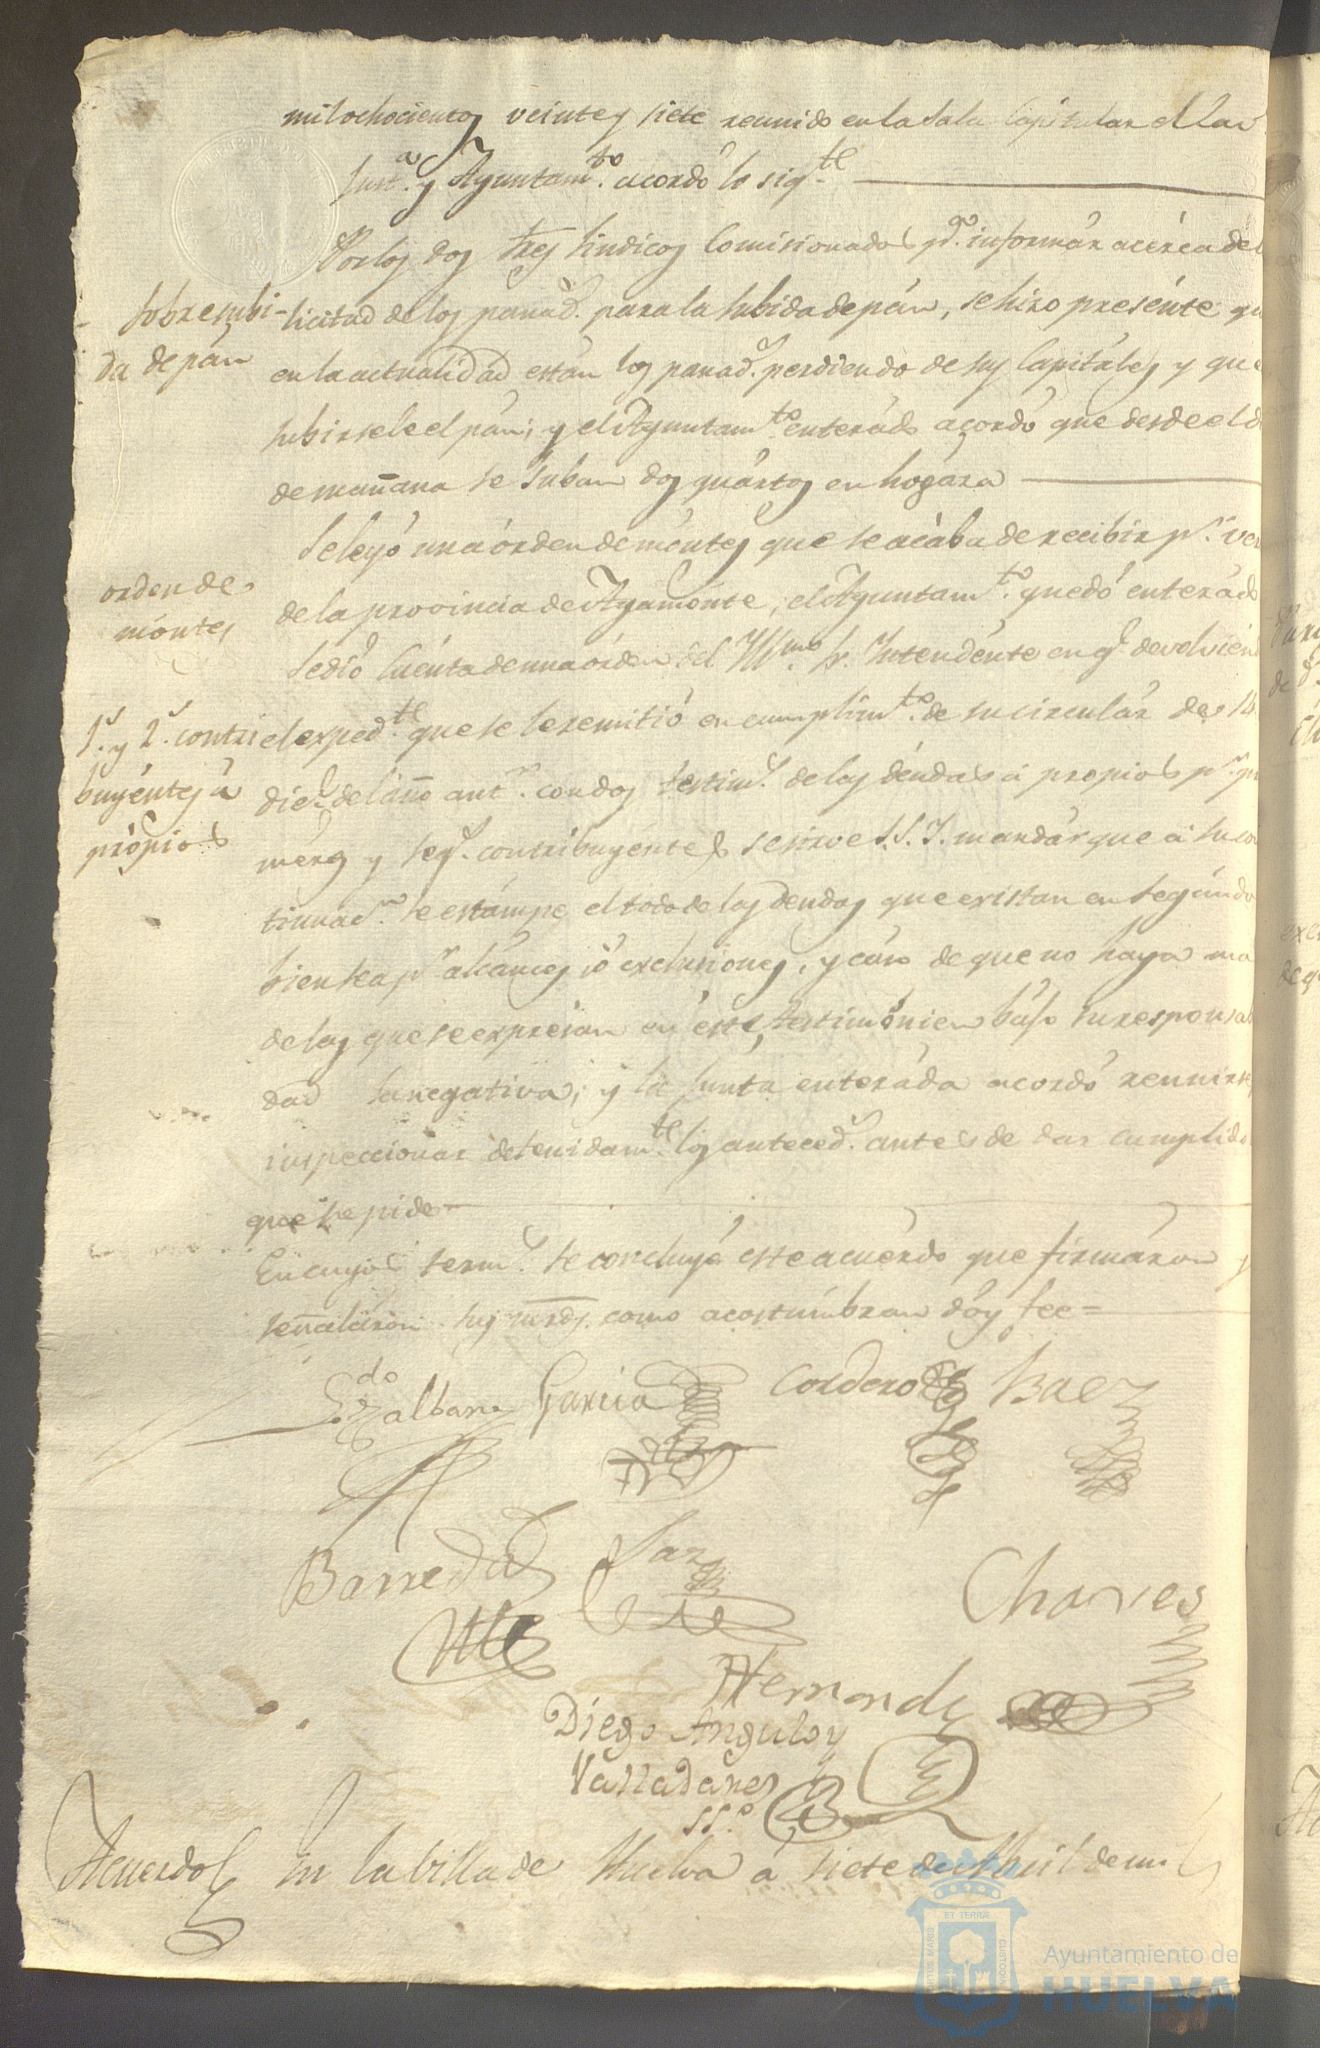 mil ochocientos veinte y siete reunido en la Sala Capitular el Yav
Just.ª y Ayuntam.to acordó lo sig.te
Por los dos Sres Sindicos Comisionados p.ª informár acérca de la
Sobre subi-
licitud de los panad.s para la subida de pán, se hizo presénte qu
da de pán
en la actualidad están los panad.s perdiendo de sus Capitáles y que
subirsele el pán; y el Ayuntam.to enterádo acordó que desde el d
de mañana se suban dos quártos en hogáza
Se leyó una órden de móntes que se acába de recibir p.r ver
orden de
móntes
de la provincia de Ayamónte, el Ayuntam.to quedó enterádo
Se dió cuénta de una órden del Yllmo Sr. Intendénte en q.e devolviénd
1.s y 2.s contri
el exped.te que se le remitió en cumplim.to de su circulár de 14
buyéntes á
dic.e del año ant.r con dos testim.s de las déudas á propios p.r pri
própios
meros y seg.s contribuyentes, se sirve S.S.Y. mandár que á su con
tinuac.n se estámpe el todo de las deudas que existan en segúndos
bien sea p.r alcánces ó exclusiones, y cáso de que no haya mas
de las que se exprésan en éste, testimónien bájo su responsabi
dad la negativa; y la Junta enteráda acordó reunirse
inspeccionar detenidam.te los anteced.s ántes de dar cumplido
que se pide
En cuyos térm.s se concluyó éste acuérdo que firmáron y
señaláron sus mrds. como acostúmbran dóy fee=
L.do Garcia Cordero Baez
Barreda Chaves
Hernandz
Diego Angulo y
Valladares
SS.º
Acuerdo En la billa de Huelva á siete de Abril de mil
ET TERRÆ
PORTUS MARIS
CUSTODIA
Ayuntamiento de
HUELVA